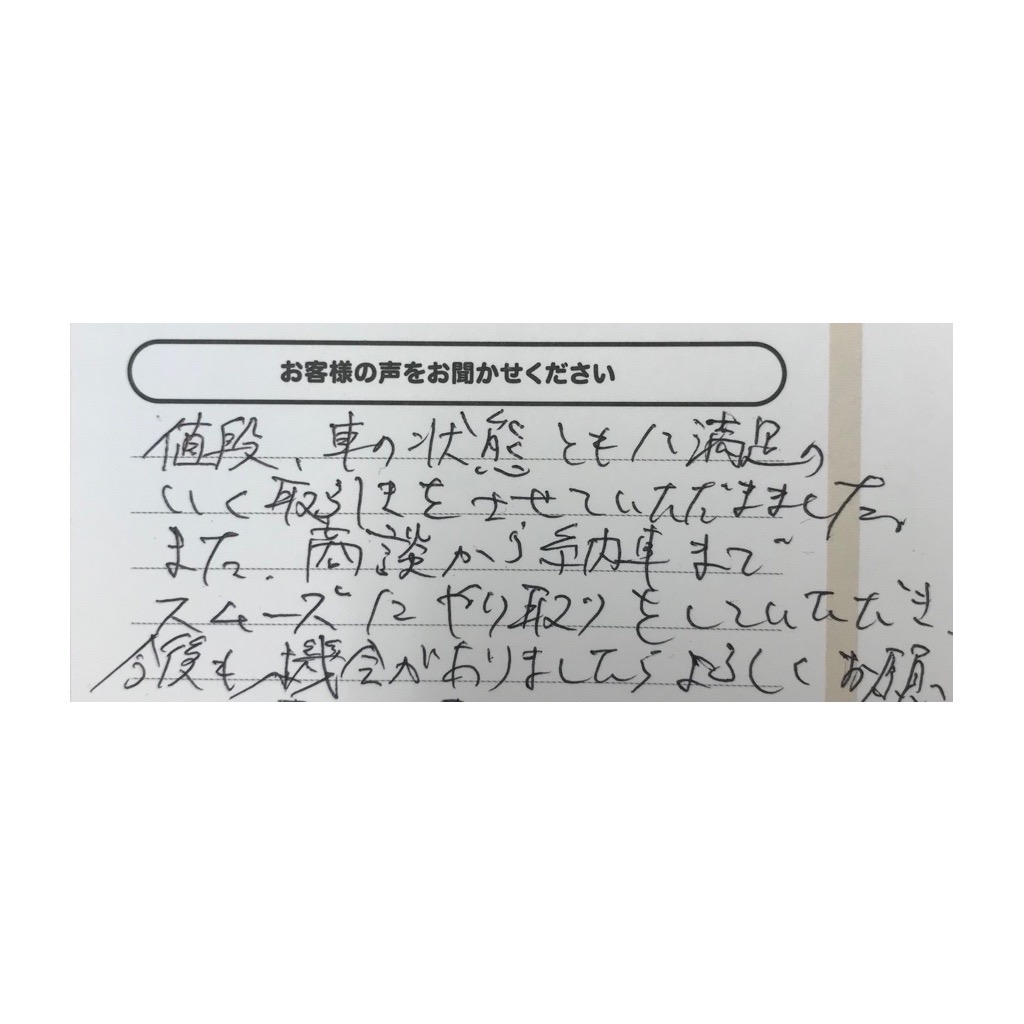 お客様の声をお聞かせください
値段、車の状態ともに満足の
いく取引きをさせていただきました。
また、商談から納車まで
スムーズにやり取りをしていただき、
今後も機会がありましたらよろしくお願い